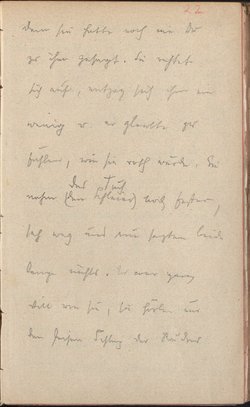 22
denn sie hatte noch nie Du
zu ihm gesagt. Sie richtete
sich auf, entzog sich ihm ein
wenig u. er glaubte zu
fühlen, wie sie roth wurde. Sie
das Tuch
nahm (den Schleier) noch fester,
sah weg und nun sagten beide
lange nichts. Er war ganz
still wie sie, sie hörten nur
den leisen Schlag der Räder